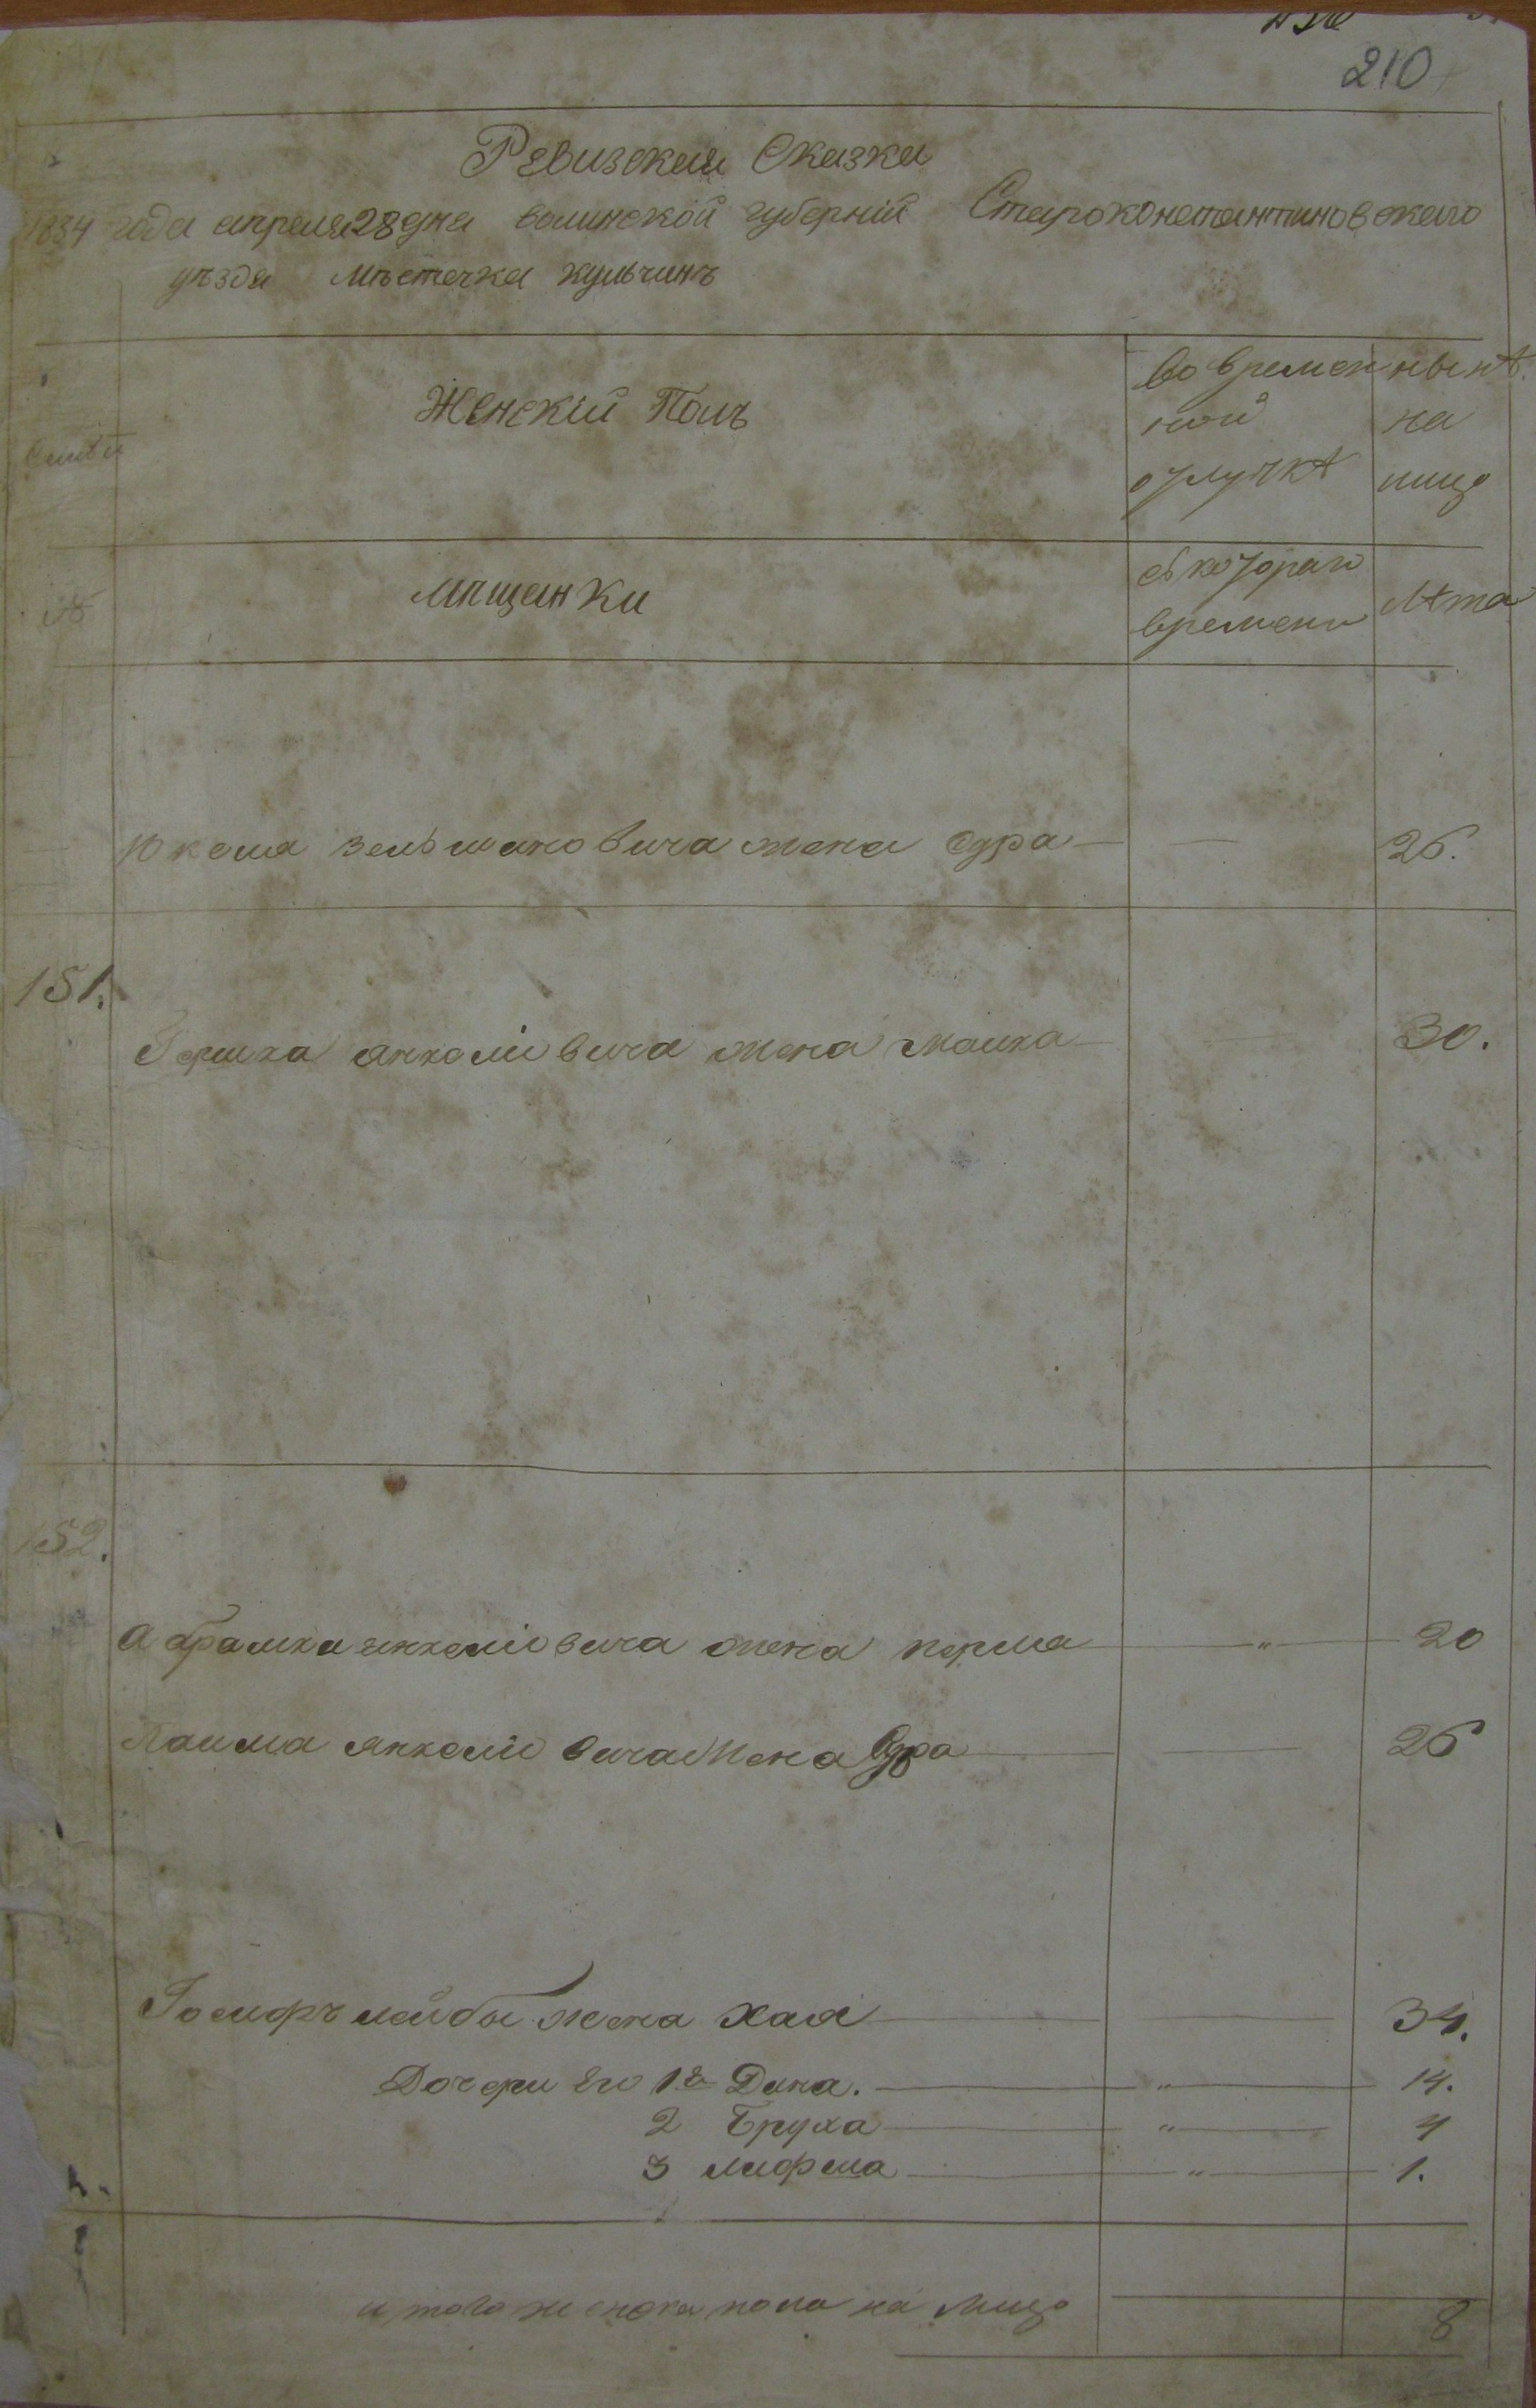 210
Ревизская Сказка
1834 года апреля 28 дня волинской губерніи Староконстантиновскаго
уѣзда мѣстечка кульчинъ
Женскій Полъ
во времен
ной
отлучкѣ
нынѣ
на
лицо
Семьи
мѣщанки
съ котораго
времени
Лѣта
№
Юкеля Зельмановича жена Одра 26.
151.
Гершка янкелiовича жена малка 30.
152.
Абрамка янкелiовича жена перла " 20
Хаима янкелiовича Жена Одра 26
Iосифъ лейбы жена Хая 34.
Дочери Его 1я Дина. " 14.
2 Бруха " 4
3 " 1.
итого женска пола на лицо 8